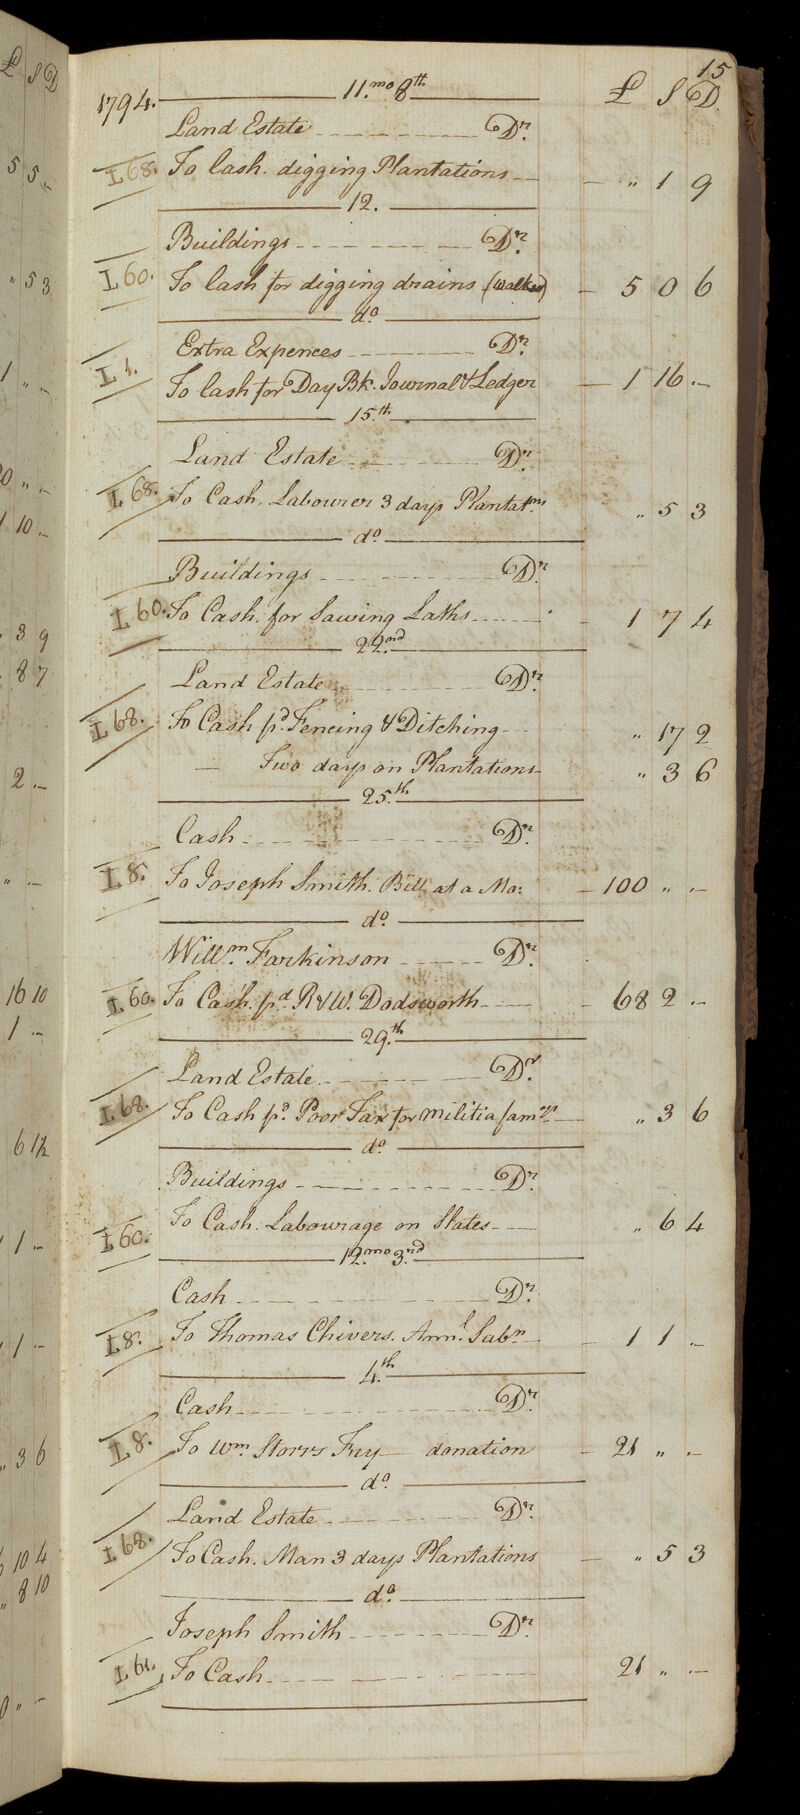 15
1794. 11.mo 8th £ S D.
Land Estate Dr.
L 68. To Cash. digging Plantations " 1 9
12.
Buildings Dr.
L 60. To Cash for digging drains (Walker) 5 0 6
do.
Extra Expences Dr.
L 1. To Cash for Day Bk. Journal & Ledger 1 16 -
15.th
Land Estate Dr.
L 68. To Cash. Labourer 3 days Plantatns " 5 3
do.
Buildings Dr.
L 60. To Cash. for Sawing Laths 1 7 4
22.nd
Land Estate Dr.
L 68. To Cash pd. Fencing & Ditching " 17 2
— Two days on Plantations " 3 6
25.th
Cash Dr.
L 8. To Joseph Smith. Bill at a Mo: 100 " -
do.
Willm. Farkinson Dr.
L 60. To Cash. pd R & W. Dodsworth 68 2 -
29.th
Land Estate Dr.
L 68. To Cash pd. Poor Tax for militia " 3 6
do.
Buildings Dr.
L 60. To Cash. Labourage on Slates " 6 4
12.mo 3.rd
Cash Dr.
L 8. To Thomas Chivers. Annl. Subn 1 1 -
4.th
Cash Dr.
L 8. To Wm. Storrs Fry — donation 21 " -
do.
Land Estate Dr.
L 68. To Cash. Man 3 days Plantations " 5 3
do.
Joseph Smith Dr.
L 61. To Cash 21 " -